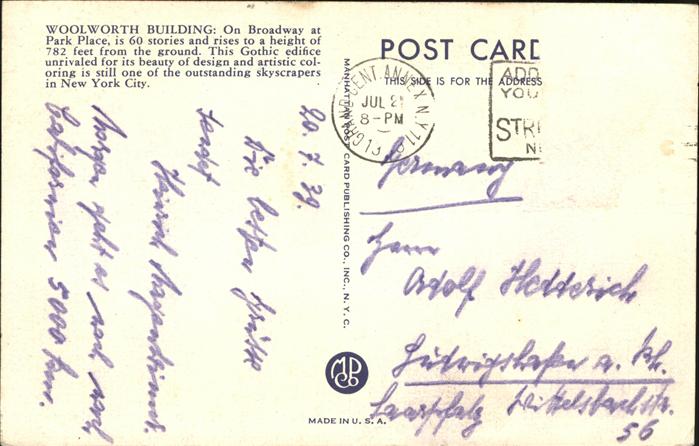 WOOLWORTH BUILDING: On Broadway at
Park Place, is 60 stories and rises to a height of
782 feet from the ground. This Gothic edifice
unrivaled for its beauty of design and artistic col-
oring is still one of the outstanding skyscrapers
in New York City.
POST CARD
THIS SIDE IS FOR THE ADDRESS
GRAND CENT. ANNEX N.Y.
JUL 21
8-PM
ADD
YOU
STR
N
MANHATTAN POST CARD PUBLISHING CO., INC., N. Y. C.
MPC
MADE IN U. S. A.
20. 7. 39.
Die besten Grüße
sendet
Heinrich
Morgen geht es noch nach
Californien 5000 km.
Germany
Herrn
Adolf Hetterich
Ludwigshafen a. Rh.
Saarpfalz Wittelsbachstr.
56